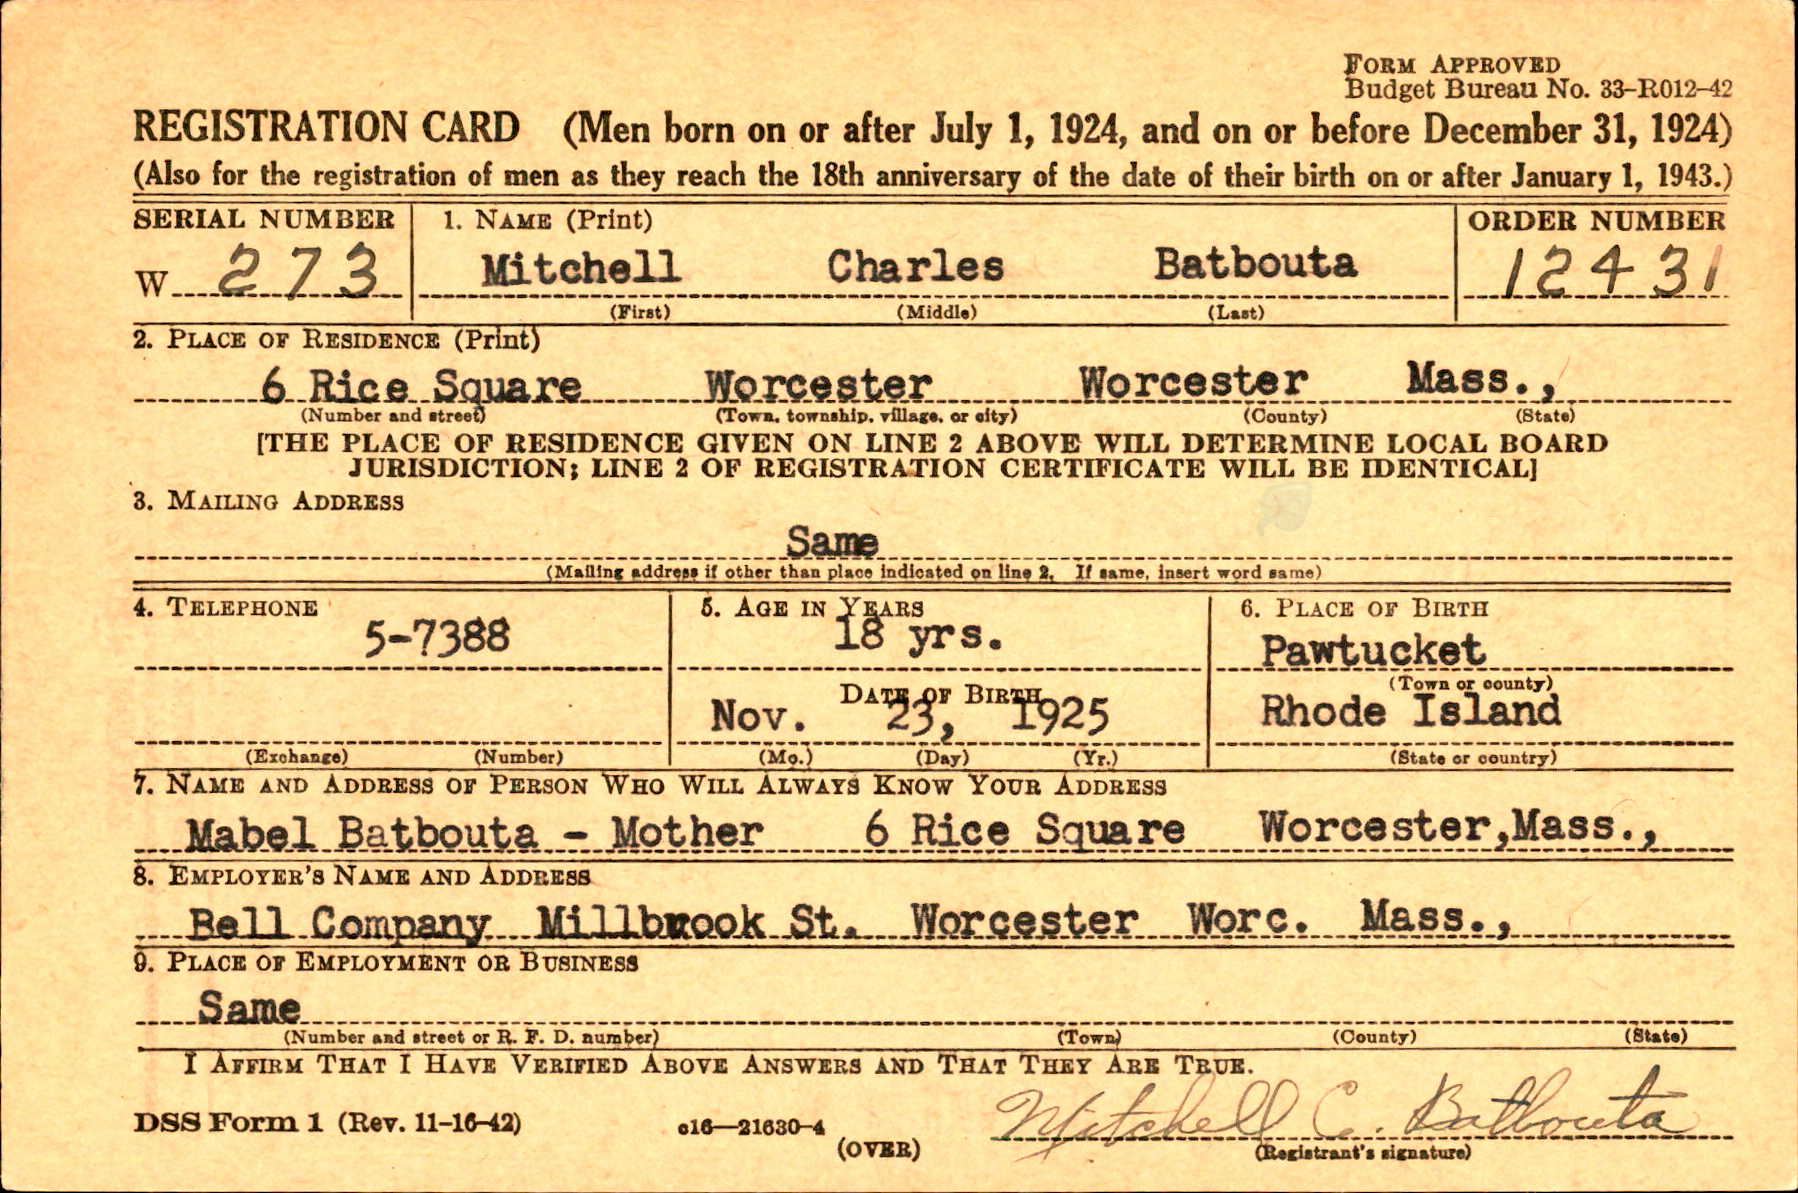 FORM APPROVED
Budget Bureau No. 33-R012-42
REGISTRATION CARD (Men born on or after July 1, 1924, and on or before December 31, 1924)
(Also for the registration of men as they reach the 18th anniversary of the date of their birth on or after January 1, 1943.)
SERIAL NUMBER 1. NAME (Print) ORDER NUMBER
W 273 Mitchell Charles Batbouta 12431
(First) (Middle) (Last)
2. PLACE OF RESIDENCE (Print)
6 Rice Square Worcester Worcester Mass.,
(Number and street) (Town, township, village, or city) (County) (State)
[THE PLACE OF RESIDENCE GIVEN ON LINE 2 ABOVE WILL DETERMINE LOCAL BOARD
JURISDICTION; LINE 2 OF REGISTRATION CERTIFICATE WILL BE IDENTICAL]
3. MAILING ADDRESS
Same
(Mailing address if other than place indicated on line 2. If same, insert word same)
4. TELEPHONE 5. AGE IN YEARS 6. PLACE OF BIRTH
5-7388 18 yrs. Pawtucket
(Town or county)
DATE OF BIRTH
Nov. 23, 1925 Rhode Island
(Exchange) (Number) (Mo.) (Day) (Yr.) (State or country)
7. NAME AND ADDRESS OF PERSON WHO WILL ALWAYS KNOW YOUR ADDRESS
Mabel Batbouta - Mother 6 Rice Square Worcester,Mass.,
8. EMPLOYER'S NAME AND ADDRESS
Bell Company Millbrook St. Worcester Worc. Mass.,
9. PLACE OF EMPLOYMENT OR BUSINESS
Same
(Number and street or R. F. D. number) (Town) (County) (State)
I AFFIRM THAT I HAVE VERIFIED ABOVE ANSWERS AND THAT THEY ARE TRUE.
Mitchell C. Batbouta
DSS Form 1 (Rev. 11-16-42) c16—21630-4
(OVER) (Registrant's signature)